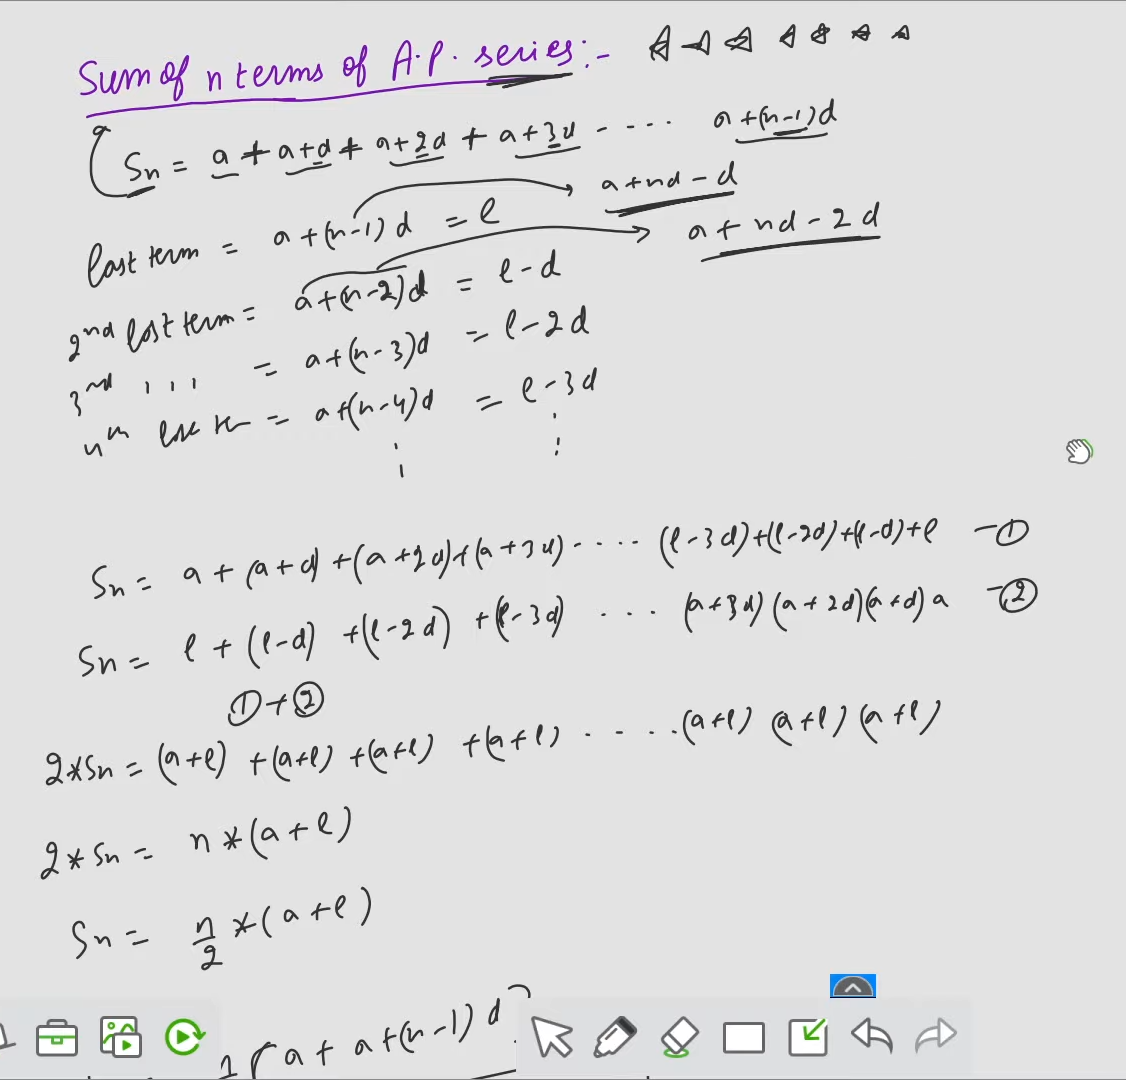 Sum of n terms of A.P. series:-
Sn = a + a+d + a+2d + a+3d - - - - - a+(n-1)d
last term = a+(n-1)d = l a+nd-d
2nd last term = a+(n-2)d = l-d a+nd-2d
3rd ,,, = a+(n-3)d = l-2d
= a+(n-4)d = l-3d
Sn = a + (a+d) +(a+2d)+(a+3d)- . . . . (l-3d)+(l-2d)+(l-d)+l -①
Sn = l + (l-d) +(l-2d) +(l-3d) . . . . (a+3d) (a+2d)(a+d) a -②
①+②
2*Sn = (a+l) +(a+l) +(a+l) +(a+l) . . . . . (a+l) (a+l) (a+l)
2*Sn = n*(a+l)
Sn = n/2 *(a+l)
a + a+(n-1)d